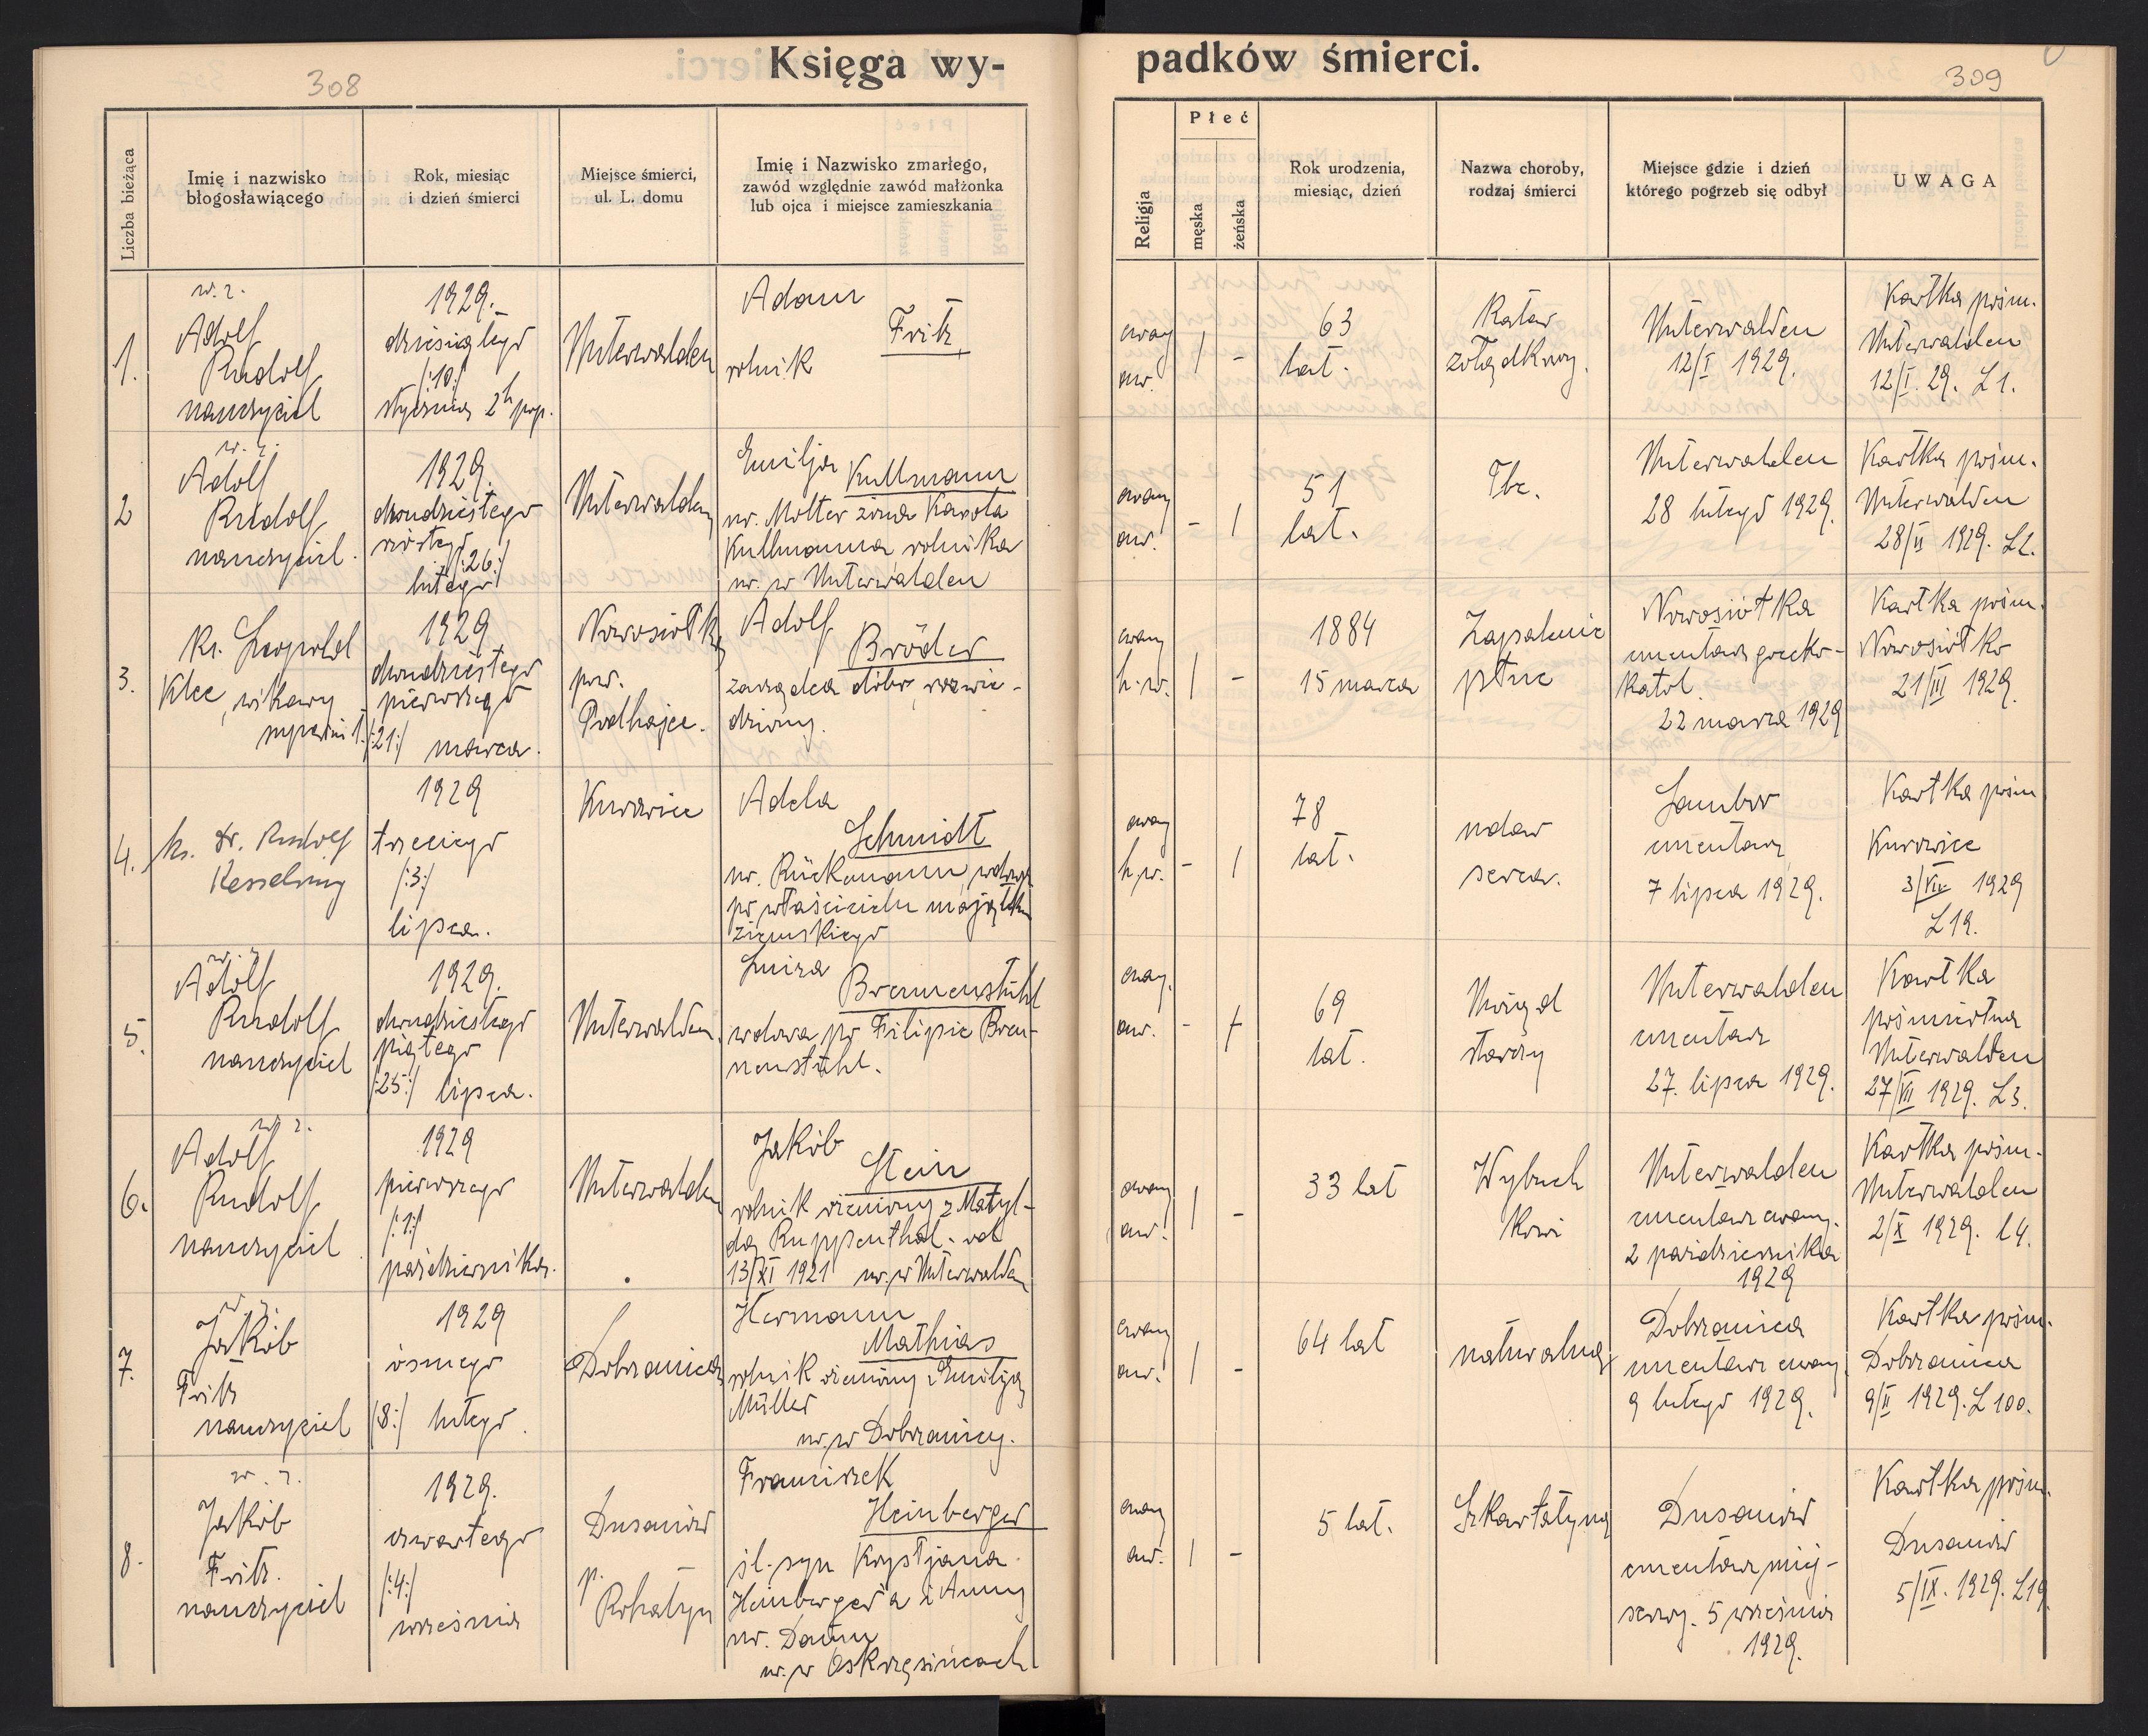 Księga wy-
padków śmierci.
308
309
Liczba bieżąca
Imię i nazwisko
błogosławiącego
Rok, miesiąc
i dzień śmierci
Miejsce śmierci,
ul. L. domu
Imię i Nazwisko zmarłego,
zawód względnie zawód małżonka
lub ojca i miejsce zamieszkania
Religja
Płeć
męska
żeńska
Rok urodzenia,
miesiąc, dzień
Nazwa choroby,
rodzaj śmierci
Miejsce gdzie i dzień
którego pogrzeb się odbył
UWAGA
1.
w. z.
Adolf
Rudolf
nauczyciel
1929.
dziesiątego
/:10:/
stycznia 2h pop.
Unterwalden
Adam
Fritz,
rolnik
ewang
aw.
| -
63
lat.
Katar
żołądkowy.
Unterwalden
12/I 1929.
Kartka pośm.
Unterwalden
12/I. 29. L 1.
2
w. z.
Adolf
Rudolf
nauczyciel.
1929.
dwudziestego
szóstego
/:26:/
lutego
Unterwalden
Emilja
Kullmann
ur. Molter żona Karola
Kullmanna rolnika
ur. w Unterwalden
ewang
aw.
- |
51
lat.
Tbc.
Unterwalden
28 lutego 1929.
Kartka pośm.
Unterwalden
28/II 1929. L2.
3.
Ks. Leopold
Klee, wikary
1929
dwudziestego
pierwszego
/:21:/ marca.
Nowosiółka
pow.
Podhajce.
Adolf
Bröder
zarządca dóbr, rozwie-
dziony.
ewang
h. w.
| -
1884
15 marca
Zapalenie
płuc
Nowosiółka
cmentarz grecko-
katol.
22 marca 1929
Kartka pośm.
Nowosiółka
21/III 1929.
4.
ks. dr. Rudolf
Kesselring
1929
trzeciego
/:3:/
lipca.
Kurowice
Adela
Schmidt
ur. Rückemann, wdowa
po właścicielu majątku
ziemskiego
ewang
h. w.
- |
78
lat.
udar
serca.
Sambor
cmentarz
7 lipca 1929.
Kartka pośm
Kurowice
3/VII 1929
L19.
5.
w. z.
Adolf
Rudolf
nauczyciel
1929.
dwudziestego
piątego
/:25:/ lipca.
Unterwalden.
Luiza
Bremenstuhl
wdowa po Filipie Brem-
menstuhl.
ewang.
aw.
- |
69
lat.
Uwiąd
starczy
Unterwalden
cmentarz
27. lipca 1929.
Kartka
pośmiertna
Unterwalden
27/VII 1929. L3.
6.
w z.
Adolf
Rudolf
nauczyciel
1929
pierwszego
/:1:/
października.
Unterwalden
Jakób
Stein
rolnik żeniony z Matyl-
dą Ruppenthal od
13/XI 1921 ur. w Unterwalden
ewang
aw.
| -
33 lat
Wybuch
krwi
Unterwalden
cmentarz ewang.
2 października
1929
Kartka pośm.
Unterwalden
2/X 1929. L4.
7.
w. z.
Jakób
Fritz
nauczyciel
1929
ósmego
/8:/ lutego.
Dobrzanica
Hermann
Mathias
rolnik żeniony z Emilją
Müller
ur. w Dobrzanicy.
ewang
aw.
| -
64 lat
naturalna
Dobrzanica
cmentarz ewang.
9 lutego 1929.
Kartka pośm.
Dobrzanica
9/II 1929. L 100.
8.
w. z.
Jakób
Fritz.
nauczyciel
1929.
czwartego
/:4:/
września
Dusanów
p.
Rohatyn
Franciszek
Heinberger
śl. syn Krystjana
Heinberger'a i Anny
ur. Daum
ur. w Oskrzesińcach
ewang
aw.
| -
5 lat.
Szkarlatyna
Dusanów
cmentarz miej-
scowy. 5 września
1929.
Kartka pośm.
Dusanów
5/IX. 1929. L19.